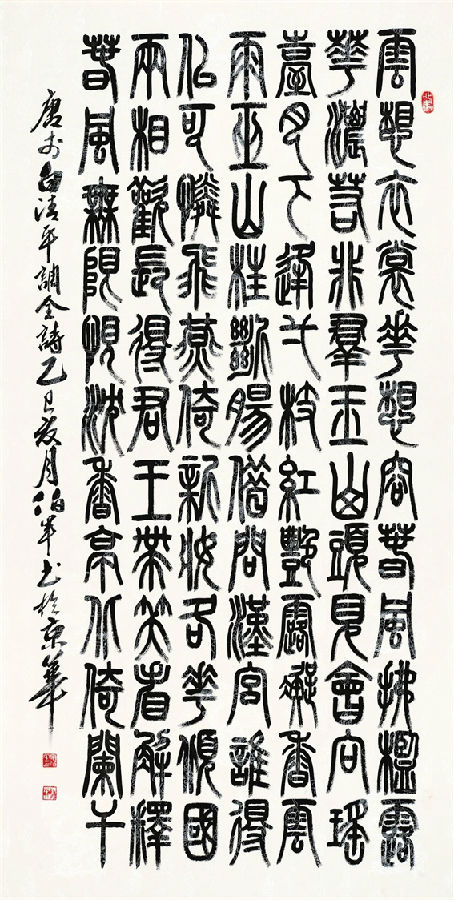 雲想衣裳華想容春風拂檻露
華濃若非群玉山頭見會向瑤
臺月下逢弌枝紅艷露凝香雲
雨巫山枉斷腸借問漢宮誰得
似可憐飛燕倚新妝名華傾國
兩相歡長得君王帶笑看解釋
春風無限恨沈香亭北倚闌干
唐李白清平調全詩乙巳夏月書於京華